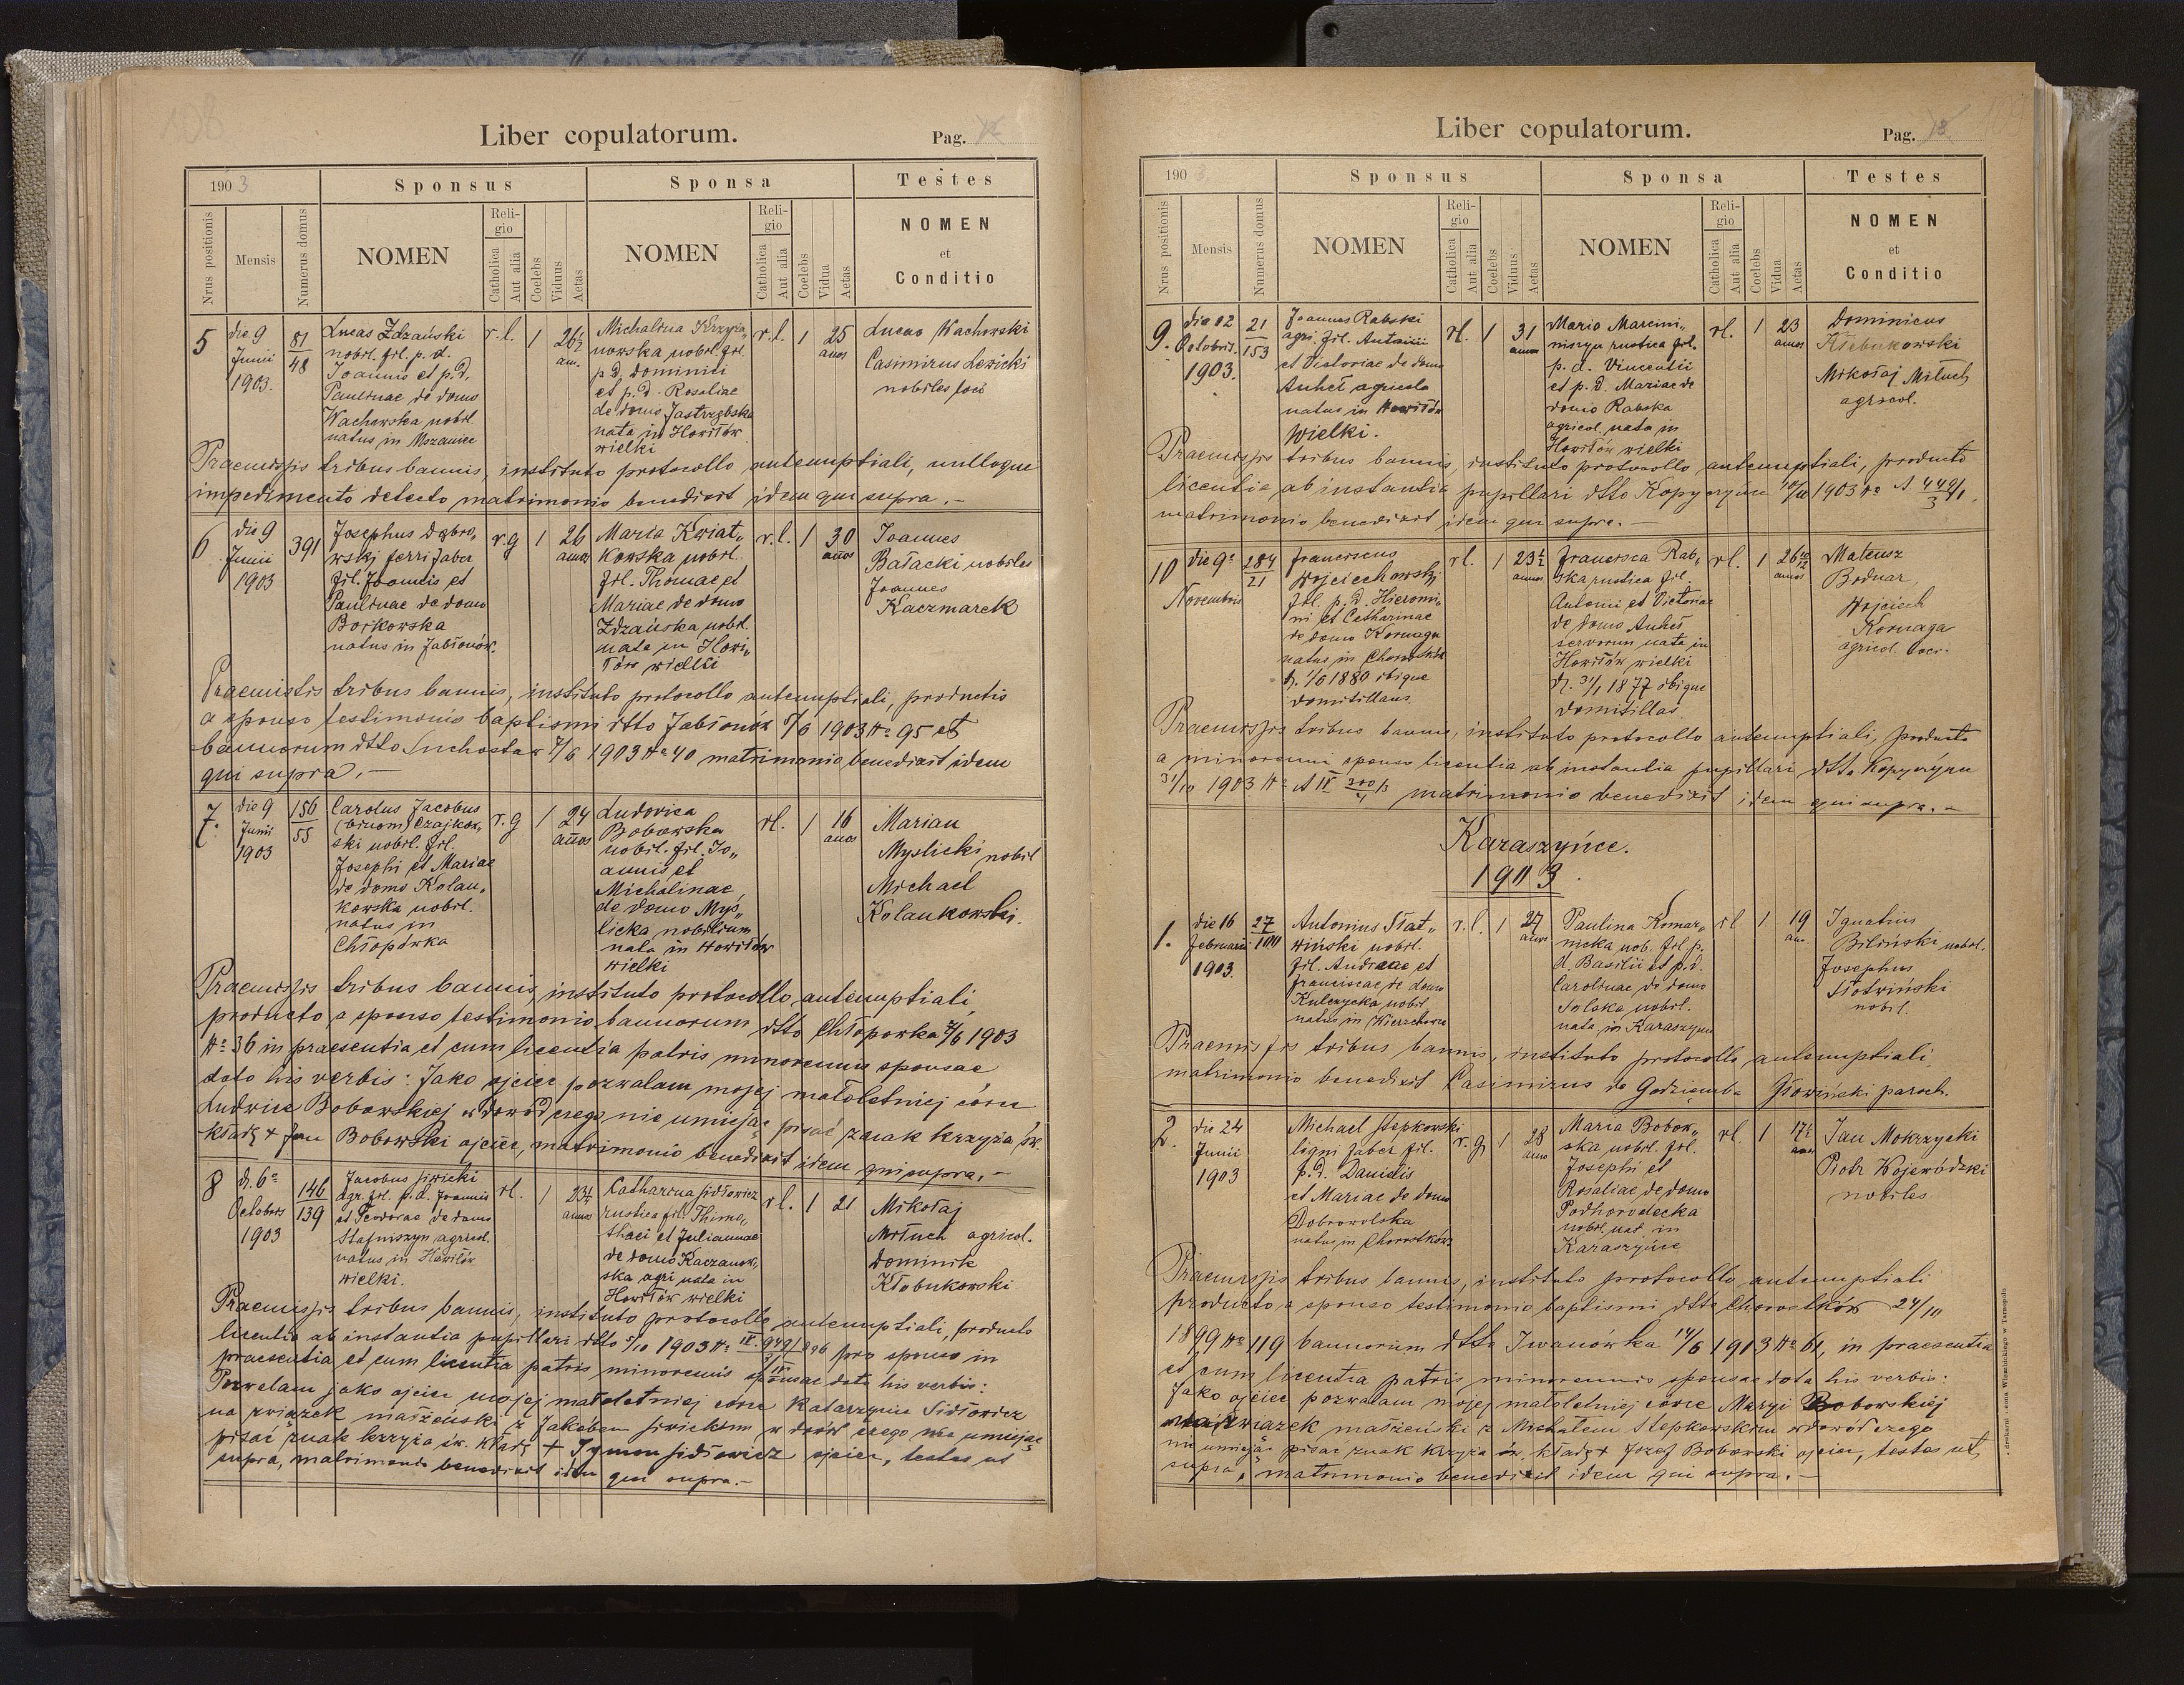 108
Liber copulatorum.
Pag. 12
1903
Sponsus
Sponsa
Testes
Nrus positionis
Mensis
Numerus domus
NOMEN
Religio
Catholica
Aut alia
Coelebs
Viduus
Aetas
NOMEN
Religio
Catholica
Aut alia
Coelebs
Vidua
Aetas
NOMEN
et
Conditio
5
die 9
Junii
1903.
81
48
Lucas Zdzański
nobil. fil. p. d.
Joannis et p. d.
Paulinae de domo
Wachowska nobil.
natus in Mszaniec
r. l.
1
26½
an.
Michalina Krzyża„
nowska nobil. fil.
p. d. Dominici
et p. d. Rosaliae
de domo Jastrzębska
nata in Howiłów
wielki
r. l.
1
25
anos
Lucas Wachowski
Casimirus Lewicki
nobiles loci
Praemissis tribus bannis, instituto protocollo antenuptiali, nulloque
impedimento detecto matrimonio benedixit idem qui supra.—
6
die 9
Junii
1903
391
Josephus Dąbro„
wski ferri faber
fil. Joannis et
Paulinae de domo
Borkowska
natus in Jabłonów.
r. g
1
26
annos
Maria Kwiat„
kowska nobil.
fil. Thomae et
Mariae de domo
Zdzańska nobil.
nata in Howi„
łów wielki
r. l.
1
30
años
Joannes
Bałacki nobiles
Joannes
Kaczmarek
Praemissis tribus bannis, instituto protocollo antenuptiali, productis
a sponso testimoniis baptismi dtto Jabłonów 7/6 1903 № 95 et
bannorum dtto Suchostaw 7/6 1903 № 40 matrimonio benedixit idem
qui supra.—
7.
die 9
Junii
1903
156
55
Carolus Jacobus
(binom) Czajkow„
ski nobil. fil.
Josephi et Mariae
de domo Kolan„
kowska nobil.
natus in
Chłopówka
r. g
1
24
años
Ludovica
Bobowska
nobil. fil. Jo„
annis et
Michalinae
de domo Myś„
licka nobilium
nata in Howiłów
wielki
rl.
1
16
anos
Marian
Myslicki nobil
Michael
Kolankowski.
Praemissis tribus bannis, instituto protocollo antenuptiali,
producto a sponso testimonio bannorum dtto Chłopowka 7/6 1903
№ 36 in praesentia et cum licentia patris minorennis sponsae
dato his verbis: Jako ojciec pozwalam mojej małoletniej córce
Ludwice Bobowskiej w dowód czego nie umiejąc pisać znak krzyża św.
kładę + Jan Bobowski ojciec, matrimonio benedixit idem qui supra.—
8
d. 6ª
Octobris
1903
146
139
Jacobus Siwicki
agr. fil. p. d. Joannis
et Teodorae de domo
Stafniszyn agricol.
natus in Howiłów
wielki.
rl.
1
23½
annos
Catharina Sidłowicz
rustica fil. Thimo„
thaei et Juliannae
de domo Kaczanow„
ska agri nata in
Howiłów wielki
rl.
1
21
Mikołaj
Miłuch agricol.
Dominik
Kłobukowski
Praemissis tribus bannis, instituto protocollo antenuptiali, producto
licentia ab instantia pupillari dtto 5/10 1903 № pro sponso in
praesentia et cum licentia patris minorennis sponsae data his verbis:
Pozwalam jako ojciec mojej małoletniej córce Katarzynie Sidłowicz
na związek małżeński z Jakóbem Siwickim w dowód czego nie umiejąc
pisać znak krzyża św. kładę + Tymon Sidłowicz ojciec, testes ut
supra, matrimonio benedixit idem qui supra.—
Liber copulatorum.
Pag. 13
190
Sponsus
Sponsa
Testes
Nrus positionis
Mensis
Numerus domus
NOMEN
Religio
Catholica
Aut alia
Coelebs
Viduus
Aetas
NOMEN
Religio
Catholica
Aut alia
Coelebs
Vidua
Aetas
NOMEN
et
Conditio
9.
die 12
Octobris.
1903.
21
153
Joannes Rabski
agri. fil. Antonii
et Victoriae de domo
Anheł agricola
natus in Howiłów
wielki.
rl.
1
31
annos
Maria Marcini„
rustica fil.
p. d. Vincentii
et p. d. Mariae de
domo Rabska
agricol. nata in
Howiłów wielki
rl.
1
23
annos
Dominicus
Kłebukowski
Mikołaj Miłuch
agricol.
Praemissis tribus bannis, instituto protocollo antenuptiali, producto
licentia ab instantia pupillari dtto Kopyczyńce 10/10 1903 № A 449/1
3
matrimonio benedixit idem qui supra.—
10
die 9ª
Novembris
284
21
Franciscus
Wojciechowski
fil. p. d. Hieromi„
ni et Catharinae
de domo Kornaga
natus in Chorostków
d. 1/6 1880 ibique
domicilians
rl.
1
23½
annos
Francisca Rab„
ska rustica fil.
Antonii et Victoriae
de domo Anheł
servorum nata in
Howiłów wielki
d. 31/1 1877 ibique
domicilias
rl.
1
26 10/12
annos
Mateusz
Bodnar,
Wojciech
Kornaga
agricol. loci.
Praemissis tribus bannis, instituto protocollo antenuptiali, producta
a minorenni sponso licentia ab instantia pupillari dtto Kopyczyńce
31/10 1903 № A IV 300/3 matrimonio benedixit idem qui supra.—
4
Karaszyńce.
1903.
1.
die 16
Februarii
1903
27
100
Antonius Słat„
wiński nobil.
fil. Andreae et
Franciscae de domo
Kulczycka nobil
natus in Wierzchowce
r. l.
1
27
anos
Paulina Komar„
nicka nob. fil. p.
d. Basilii et p. d.
Carolinae de domo
Solska nobil.
nata in Karaszyńce
rl
1
19
an.
Ignatius
Biliński nobil.
Josephus
Słotwiński
nobil.
Praemissis tribus bannis, instituto protocollo antenuptiali,
matrimonio benedixit Casimirus de Godziemba Głowiński paroch.
2.
die 24
Junii
1903
Michael Stepkowski
ligni faber fil.
p. d. Danielis
et Mariae de domo
Dobrowolska
natus in Chorostków
r. g
1
28
anno
Maria Bobow„
ska nobil. fil.
Josephi et
Rosaliae de domo
Podhorodecka
nobil. nat in
Karaszyńce
rl.
1
17½
anos
Jan Mokrzycki
Piotr Wojewódzki
nobiles
Praemissis tribus bannis, instituto protocollo antenuptiali
producto a sponso testimonio baptismi dtto Chorostków 24/10
1899 № 119 bannorum dtto Iwanówka 14/6 1903 № 61, in praesentia
et cum licentia patris minorennis sponsae data his verbis:
Jako ojciec pozwalam mojej małoletniej córce Maryi Bobowskiej
na związek małżeński z Michałem Stepkowskim w dowód czego
nie umiejąc pisac znak krzyża św. kładę + Józef Bobowski ojciec, testes ut
supra, matrimonio benedixit idem qui supra.—